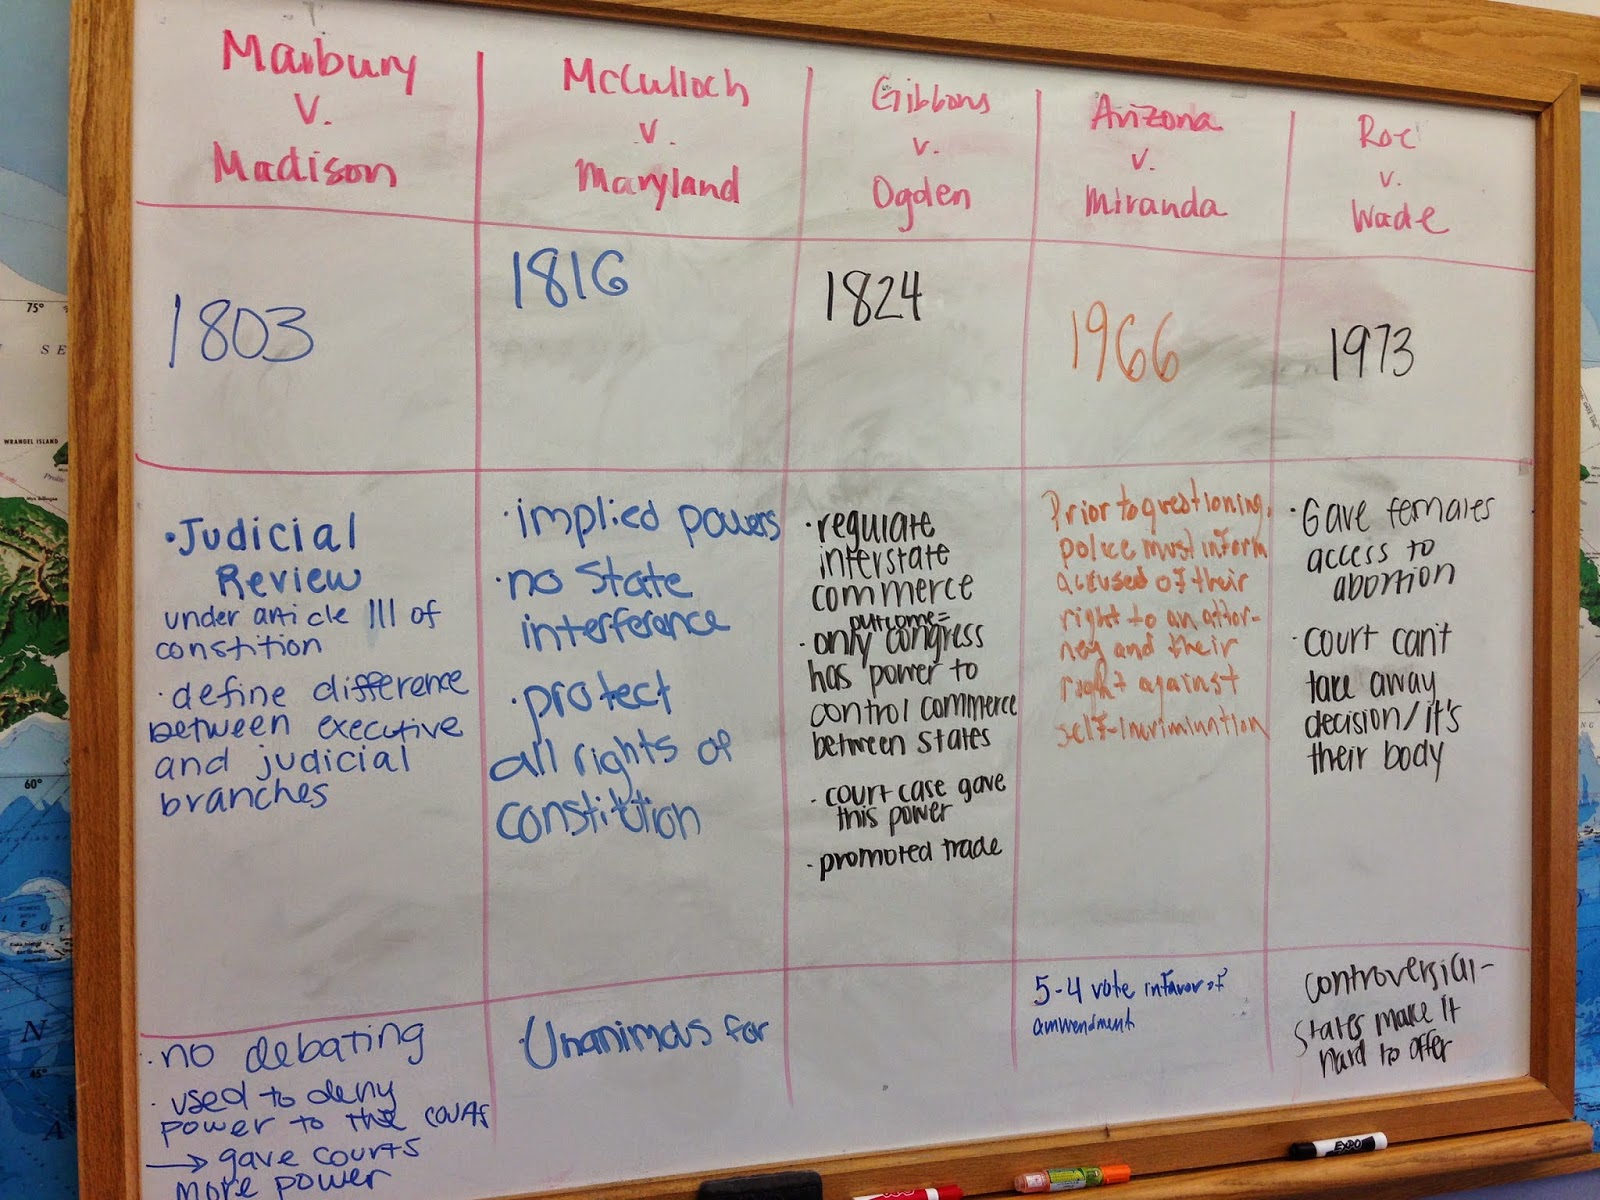 Marbury
v.
Madison
McCulloch
v.
Maryland
Gibbons
v.
Ogden
Arizona
v.
Miranda
Roe
v.
Wade
1803
1816
1824
1966
1973
· Judicial
Review
under article III of
constition
· define difference
between executive
and judicial
branches
· implied powers
· no State
interference
· protect
all rights of
constitution
· regulate
interstate
commerce
outcome=
· only congress
has power to
control commerce
between states
· court case gave
this power
· promoted trade
Prior to questioning,
police must inform
accused of their
right to an attor-
ney and their
right against
self-incrimination
· Gave females
access to
abortion
· court can't
take away
decision/it's
their body
· no debating
· used to deny
power to the courts
→ gave courts
more power
· Unanimous for
5-4 vote in favor of
amwendment
controversial-
states make it
hard to offer
EXPO
75°
SE
WRANGEL ISLAND
60°
N
45°
A